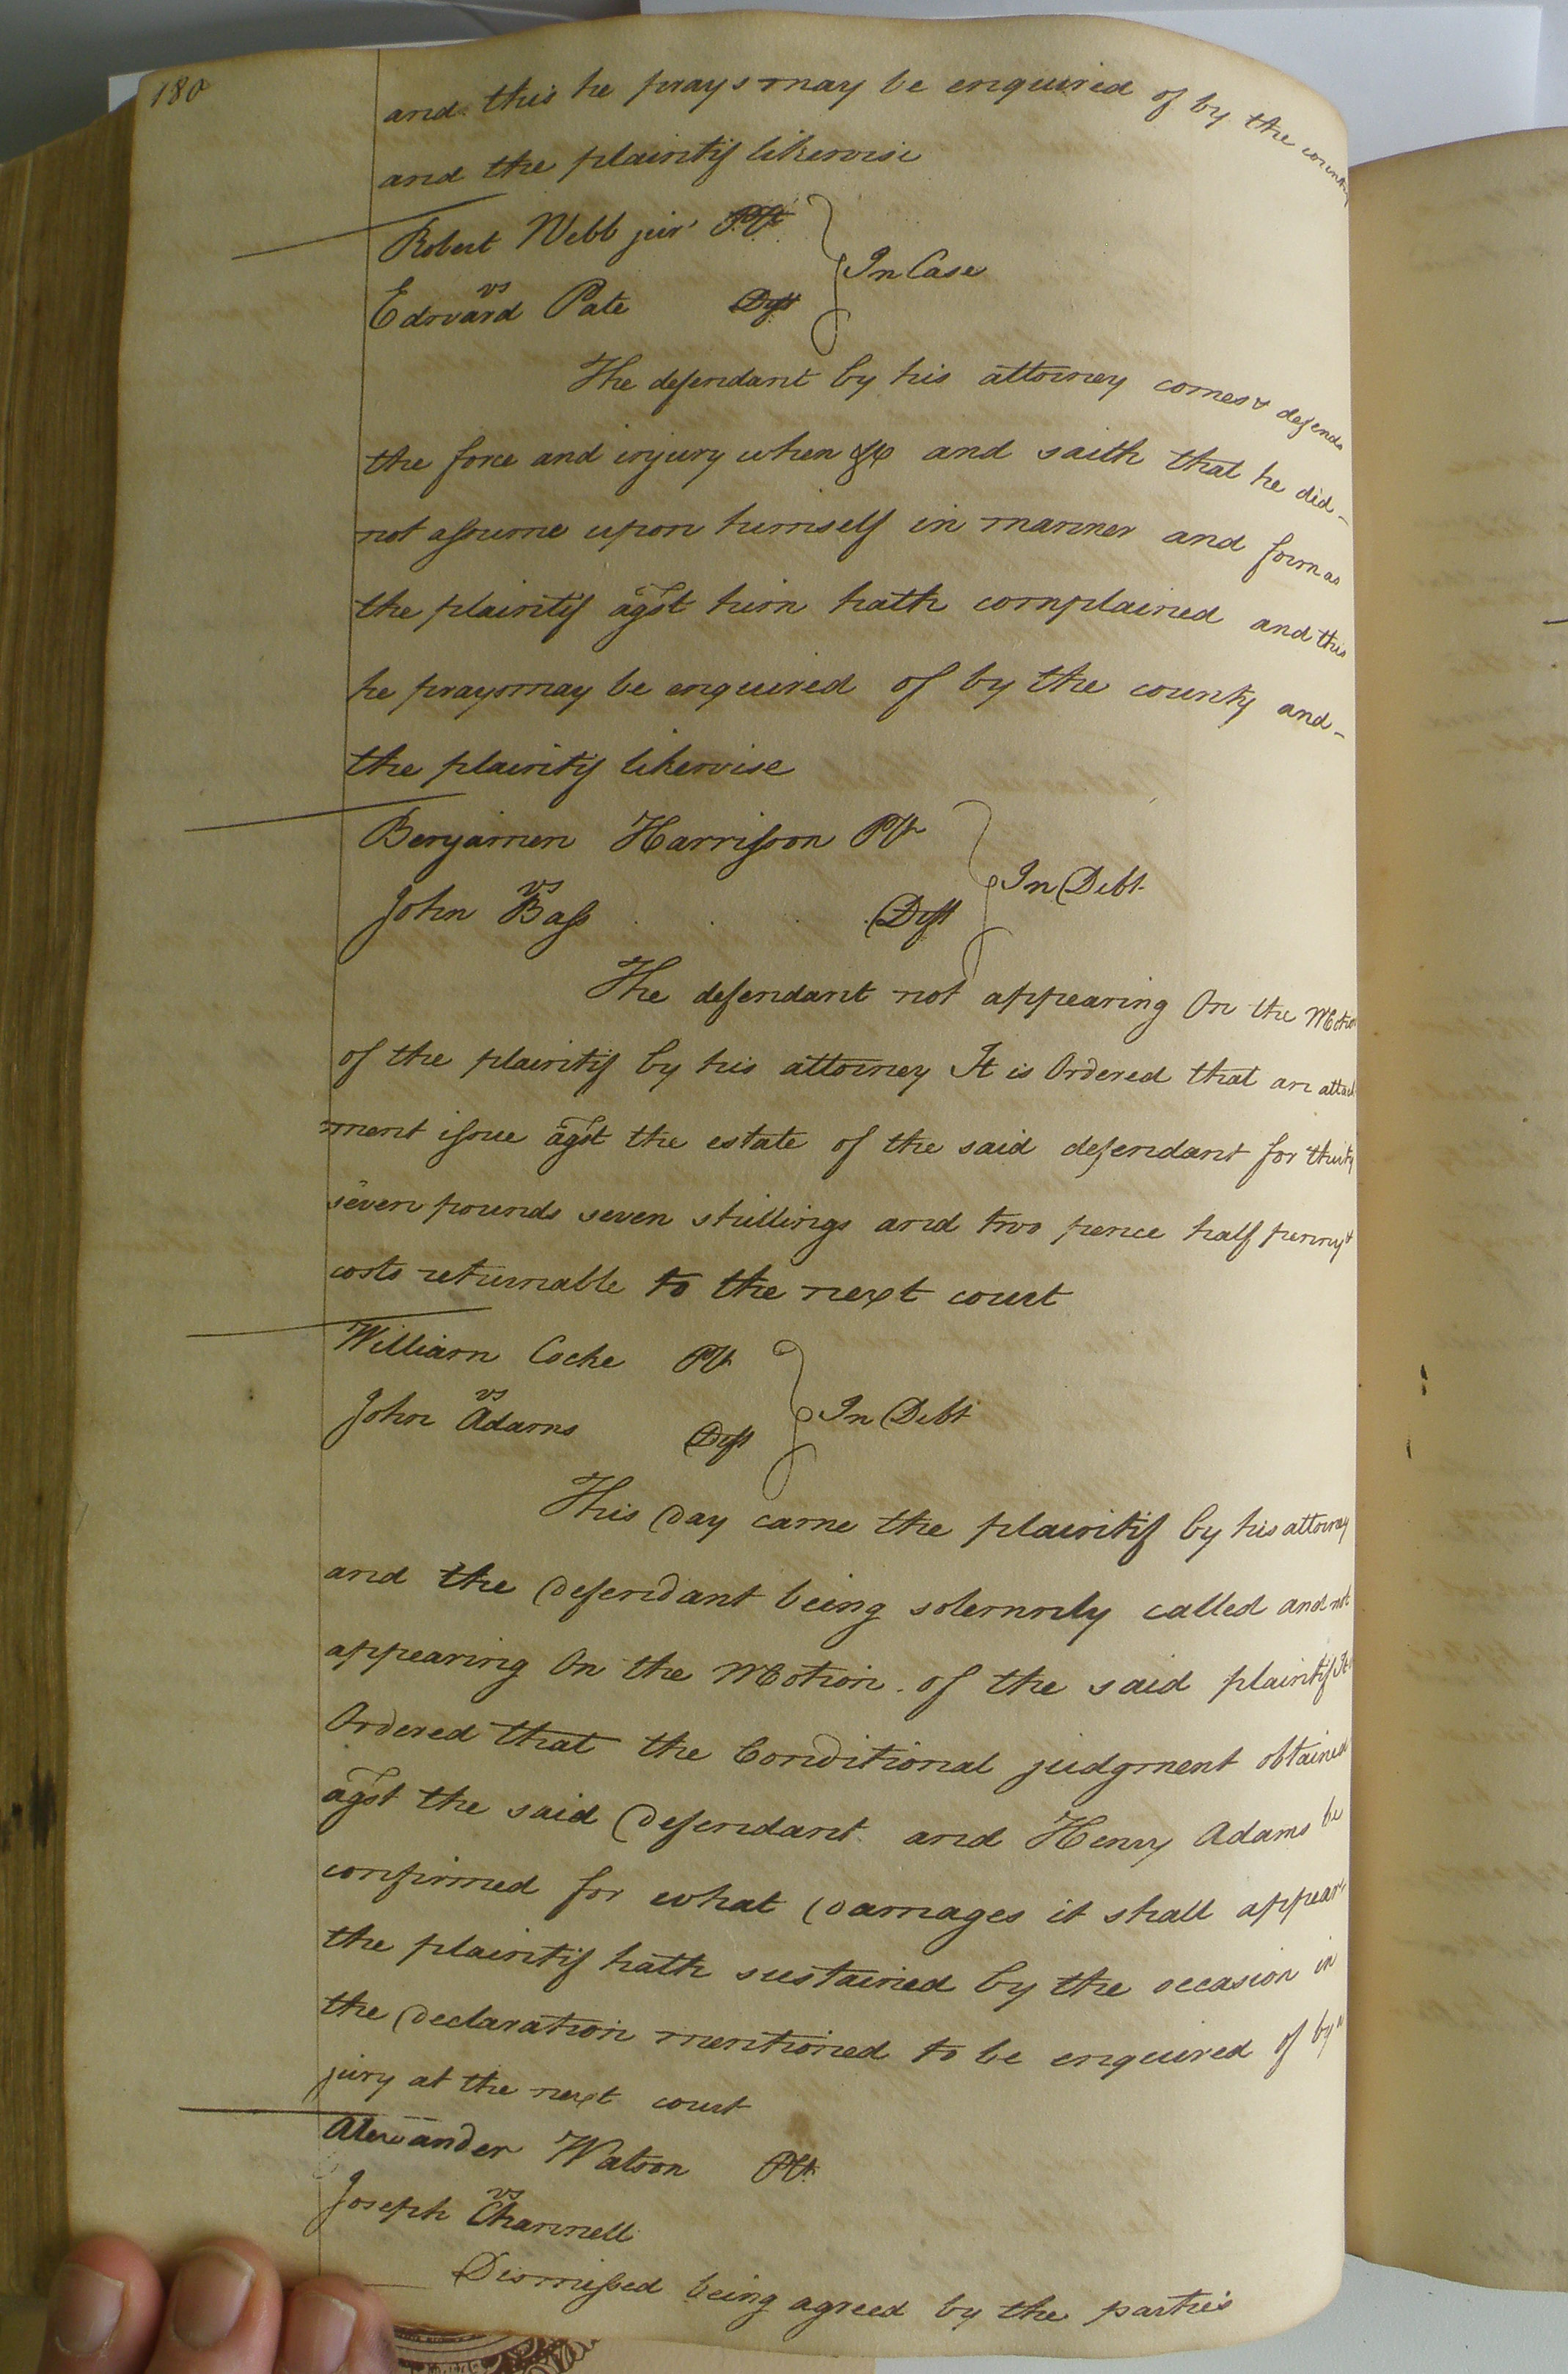 180
and this he prays may be enquired of by the country
and the plaintif likewise
Robert Webb junr Plt
vs
Edward Pate Deft
In Case
The defendant by his attorney comes & defends
the force and injury when &c and saith that he did
not assume upon himself in manner and form as
the plaintif agst him hath complained and this
he prays may be enquired of by the county and
the plaintif likewise
Benjamen Harrisson Plt
vs
John Bass Deft
In Debt
The defendant not appearing On the Motion
of the plaintif by his attorney It is Ordered that an attach
ment issue agst the estate of the said defendant for thirty
seven pounds seven shillings and two pence half penny &
costs returnable to the next court
William Cocke Plt
vs
John Adams Deft
In Debt
This Day came the plaintif by his attorney
and the Defendant being solemnly called and not
appearing On the Motion of the said plaintif It
Ordered that the Conditional judgment obtained
agst the said Defendant and Henry Adams be
confirmed for what Damages it shall appear
the plaintif hath sustained by the occasion in
the Declaration mentioned to be enquired of by a
jury at the next court
Alexander Watson Plt
vs
Joseph Channell
Dismissed being agreed by the parties